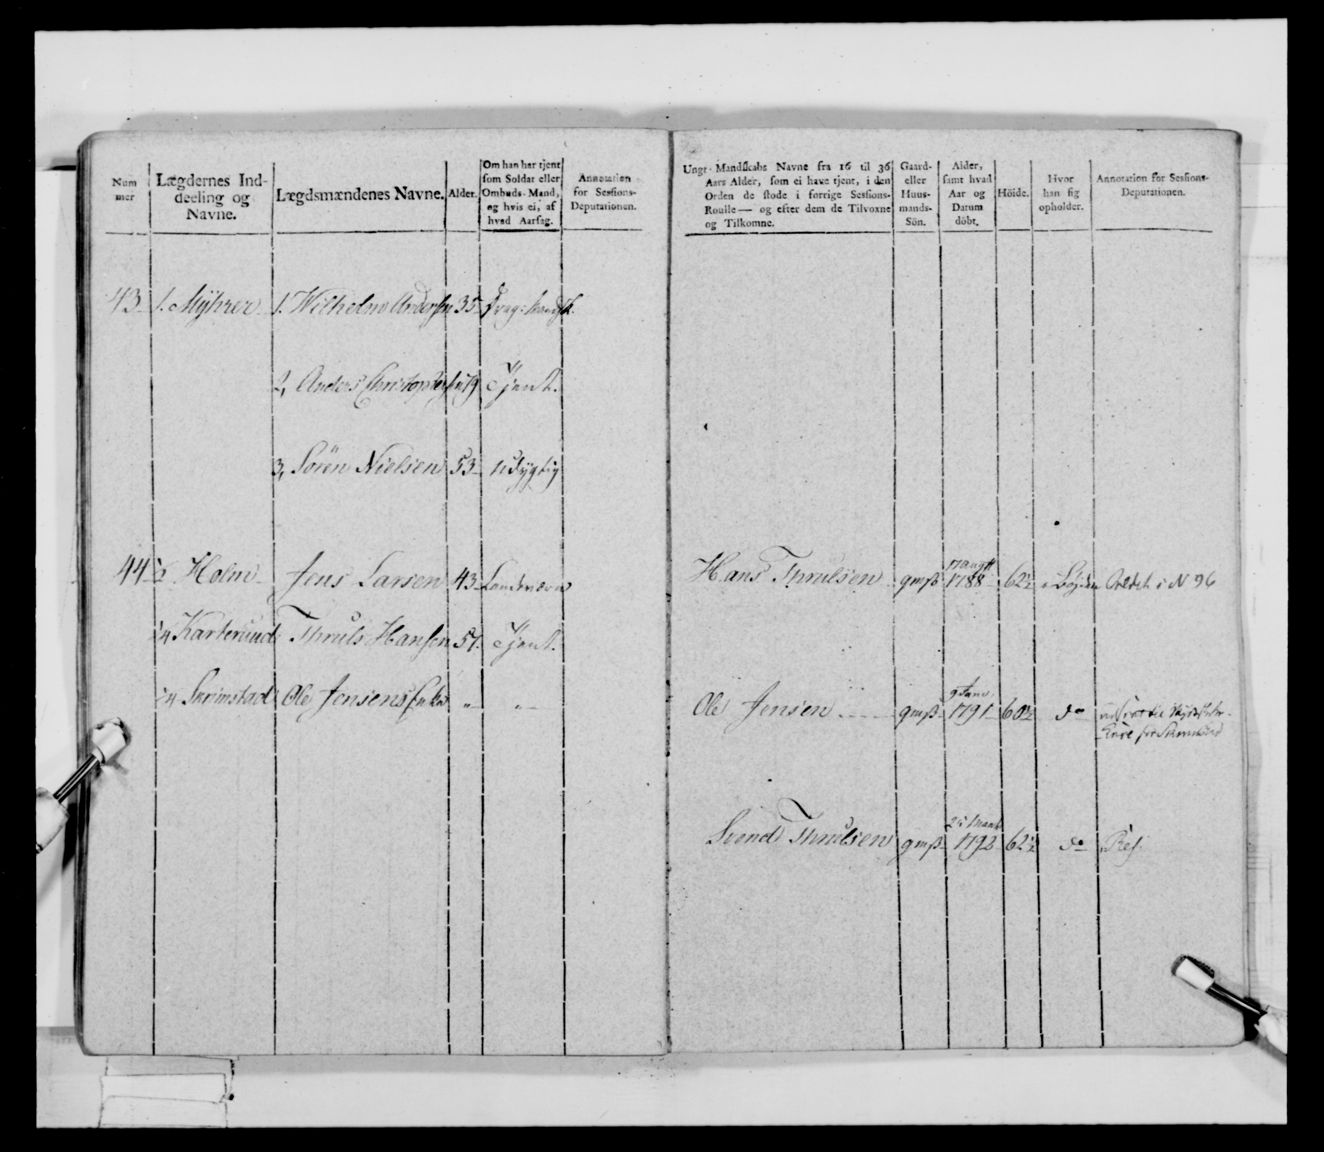 Num
mer
Lægdernes Ind-
deeling og
Navne.
Lægdsmændenes Navne.
Alder.
Om han har tjent
som Soldat eller
Ombuds-Mand,
og hvis ei, af
hvad Aarsag.
Annotation
for Sessions-
Deputationen.
43 1. Myhrer 1. Wilhelm Andersen 35
2, Anders Christophersen 49 Tjent.
3, Sören Nielsen 53 udygtig
44 ½ Holm Jens Larsen 43 Landeværn
¼ Karterud Thruls Hansen 57. Tjent.
¼ Skrimstad Ole Jensens Enke " "
Ungt Mandskabs Navne fra 16 til 36
Aars Alder, som ei have tjent, i den
Orden de stode i forrige Sessions-
Roulle — og efter dem de Tilvoxne
og Tilkomne.
Gaard-
eller
Huus-
mands-
Sön.
Alder,
samt hvad
Aar og
Datum
döbt.
Höide.
Hvor
han sig
opholder.
Annotation for Sessions-
Deputationen.
17 Augst
Hans Thrulsen gmß 1788 62½ i N 96
9 Janv.
Ole Jensen gmß 1791 60½ do
1792
Svend Thrulsen gmß 62½ do Res.